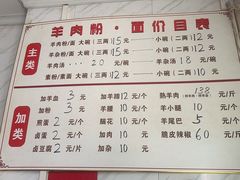 羊肉粉·面价目表
主类
羊肉粉/面 大碗(三两)15元 小碗(二两)12元
羊杂粉/面 大碗(三两)15元 小碗(二两)12元
羊肉汤 20元/碗 羊杂汤18元/碗
素粉/素面 大碗(三两)12元 小碗(二两)10元
加类
加羊血 3元 加羊蹄12元/个 熟羊肉 138元/斤
加粉 3元 加羊肉10元 羊小腿10元/个
煎蛋2元/个 脑花10元/个 羊尾巴5元/个
卤蛋2元/个 加腰10元/个 脆皮辣椒60元/斤
卤豆腐2元/片 加杂10元/个